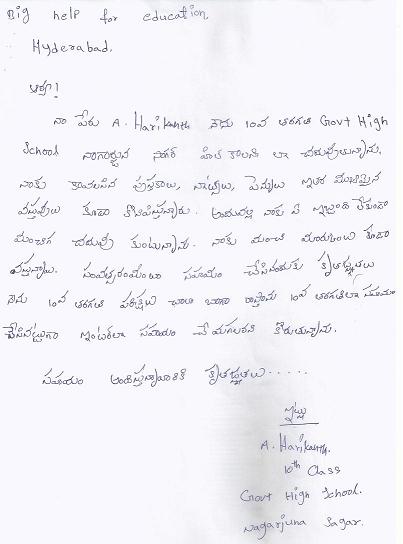 Big help for education,
Hyderabad.
ఆర్యా!
నా పేరు A. Harikanth నేను 10వ తరగతి Govt High
School నాగార్జున సాగర్ హిల్ కాలని లో చదువుతున్నాను.
నాకు కావలసిన పుస్తకాలు, నోట్సులు, పెన్నులు ఇతర ముఖ్యమైన
వస్తువులు కూడా కొనిపిస్తున్నారు. అందువల్ల నాకు ఏ ఇబ్బంది లేకుండా
మంచిగ చదువు కుంటున్నాను. నాకు మంచి మార్కులు కూడా
వస్తున్నాయి. సంవత్సరంమంతా సహాయం చేసినందుకు కృతజ్ఞతలు
నేను 10వ తరగతి పరీక్షలు చాలా బాగా రాస్తాను 10వ తరగతిలో సహాయం
చేసినట్టుగా ఇంటర్‌లో సహాయం చేయగలరని కోరుతున్నాను.
సహాయం అందిస్తున్నవారికి కృతజ్ఞతలు.....
ఇట్లు
A. Harikanth.
10th Class
Govt High School.
Nagarjuna Sagar.